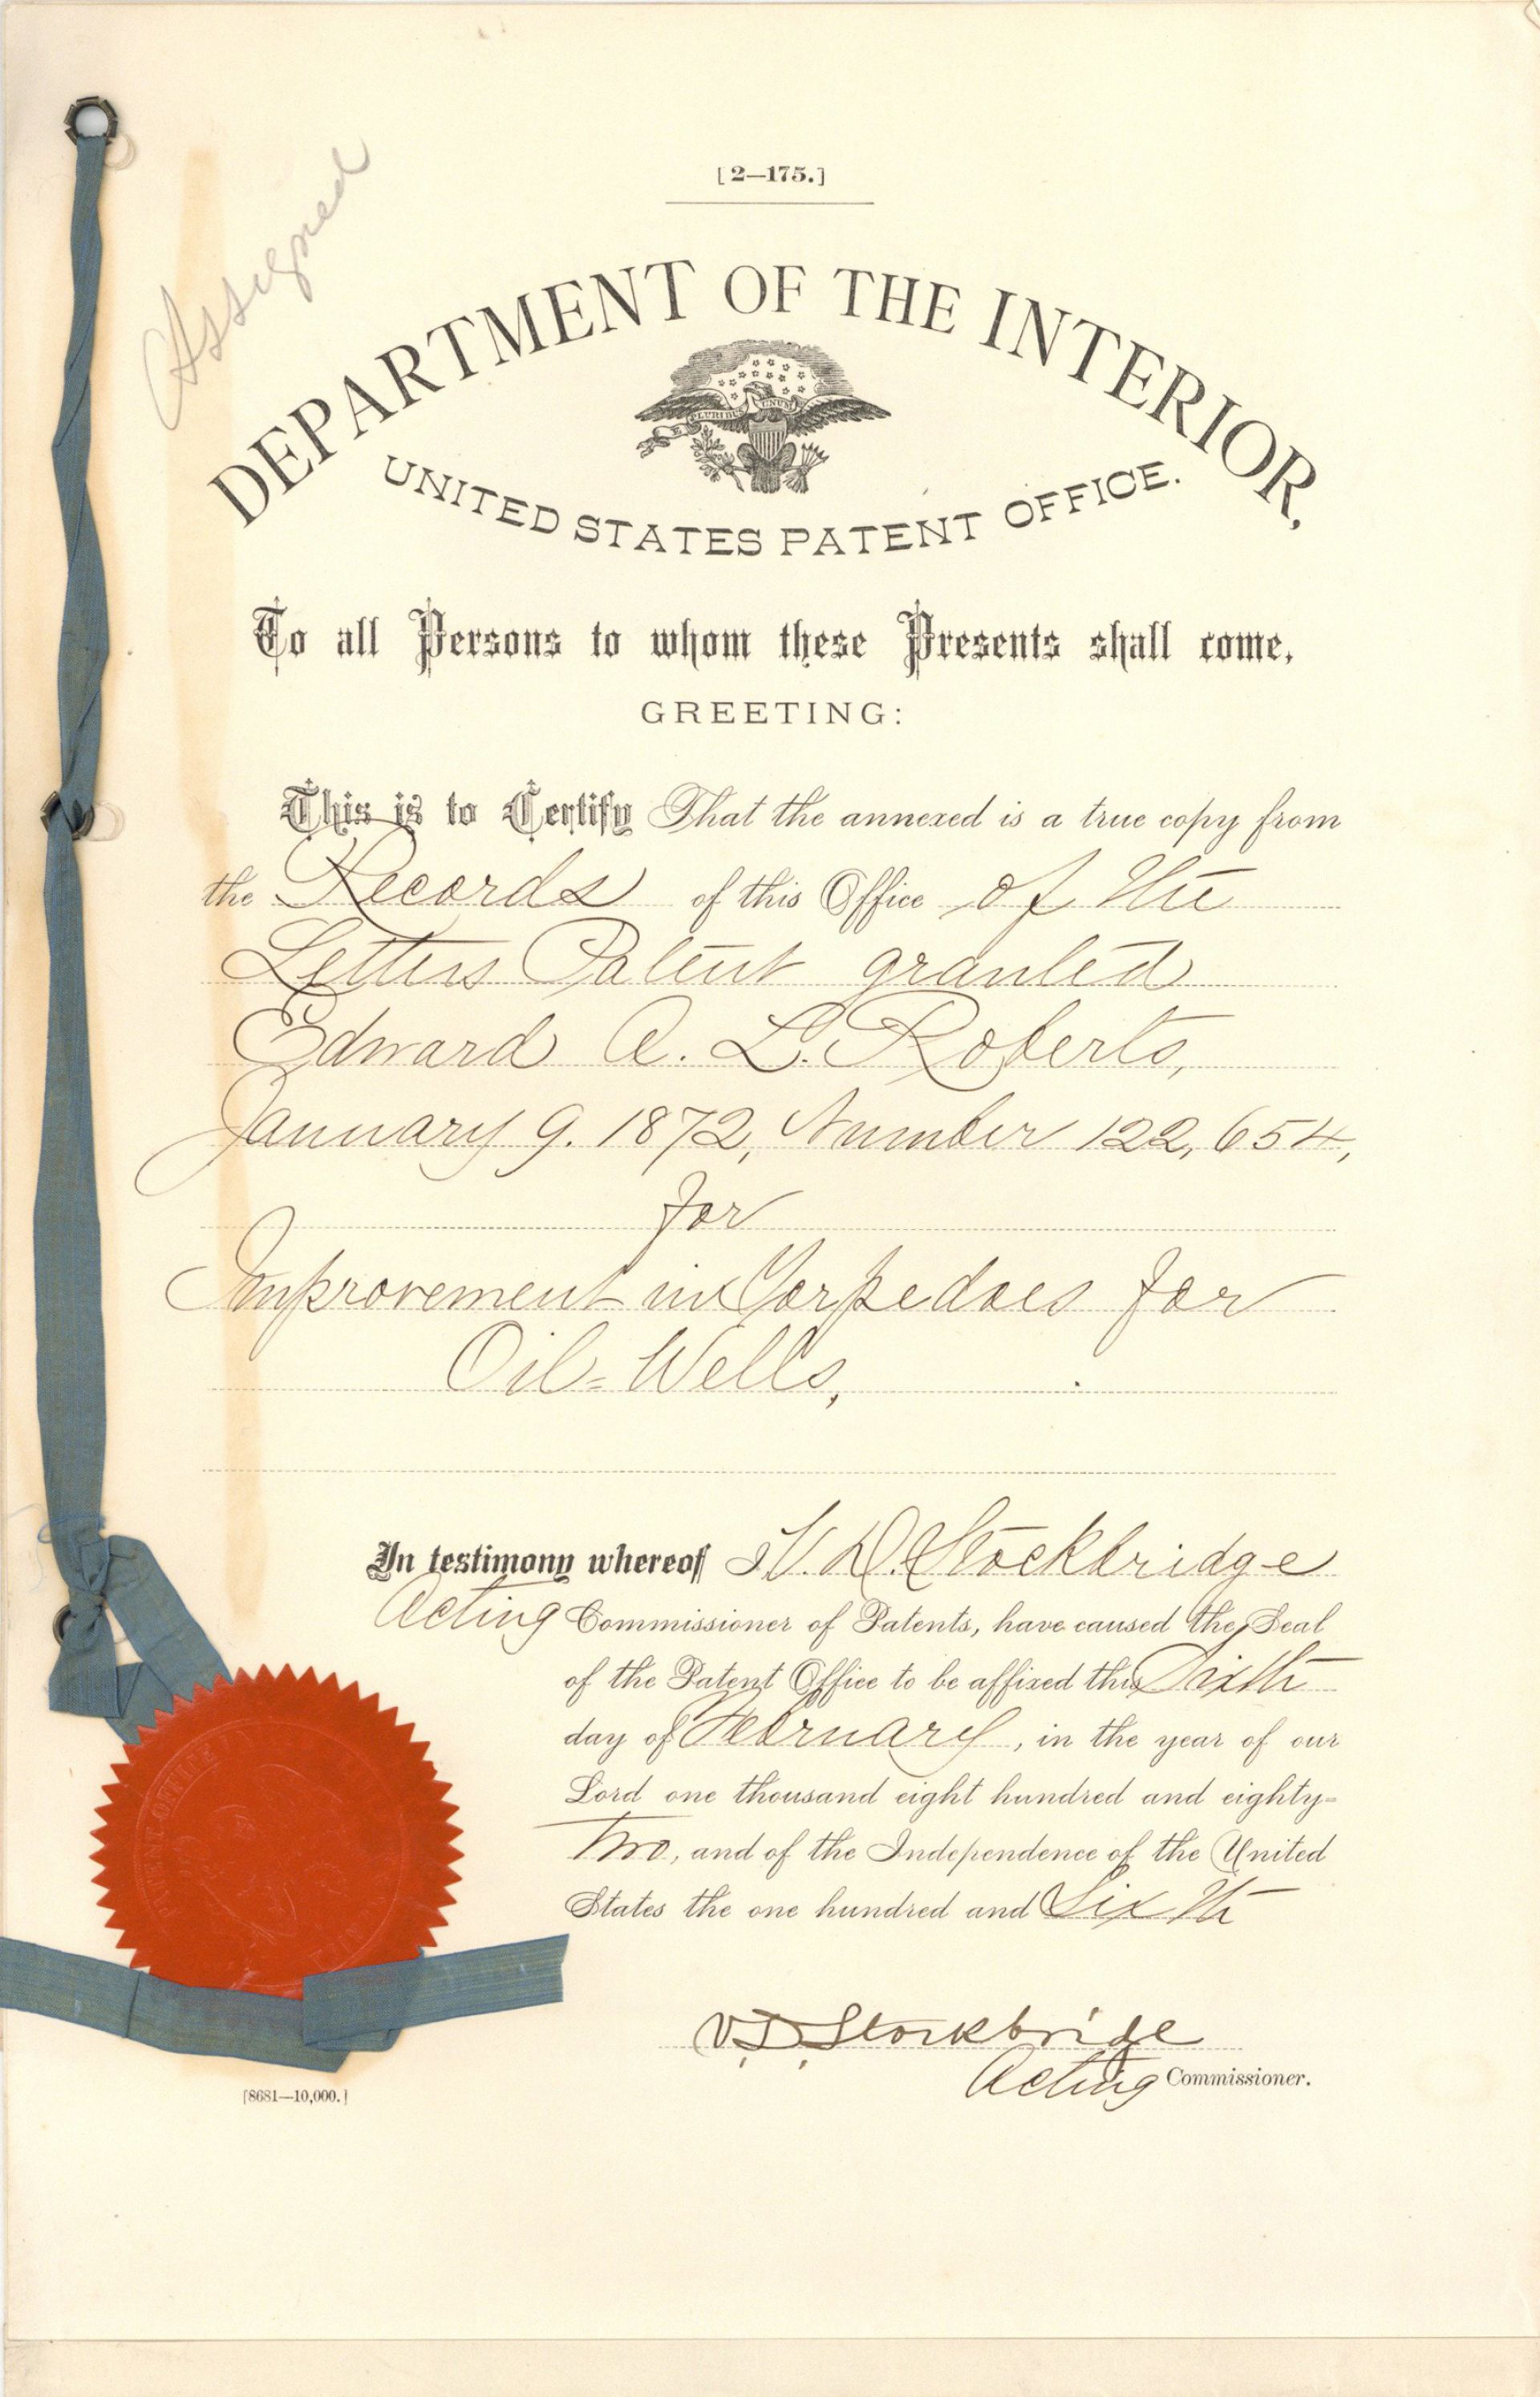 [2—175.]
Assigned
DEPARTMENT OF THE INTERIOR,
E PLURIBUS UNUM
UNITED STATES PATENT OFFICE.
To all Persons to whom these Presents shall come,
GREETING:
This is to Certify That the annexed is a true copy from
the Records of this Office of the
Letters Patent granted
Edward A. L. Roberts,
January 9. 1872, Number 122,654,
for
Improvement in Torpedoes for
Oil=Wells,
In testimony whereof I V. D. Stockbridge
Acting Commissioner of Patents, have caused the Seal
of the Patent Office to be affixed this Sixth
day of February, in the year of our
Lord one thousand eight hundred and eighty=
two, and of the Independence of the United
States the one hundred and Sixth
V. D. Stockbridge
Acting Commissioner.
PATENT OFFICE
[8681—10,000.]